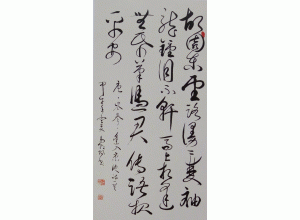 故園東望路漫漫雙袖
龍鐘泪不乾馬上相逢
無紙筆憑君傳語報
平安
唐岑參逢入京使